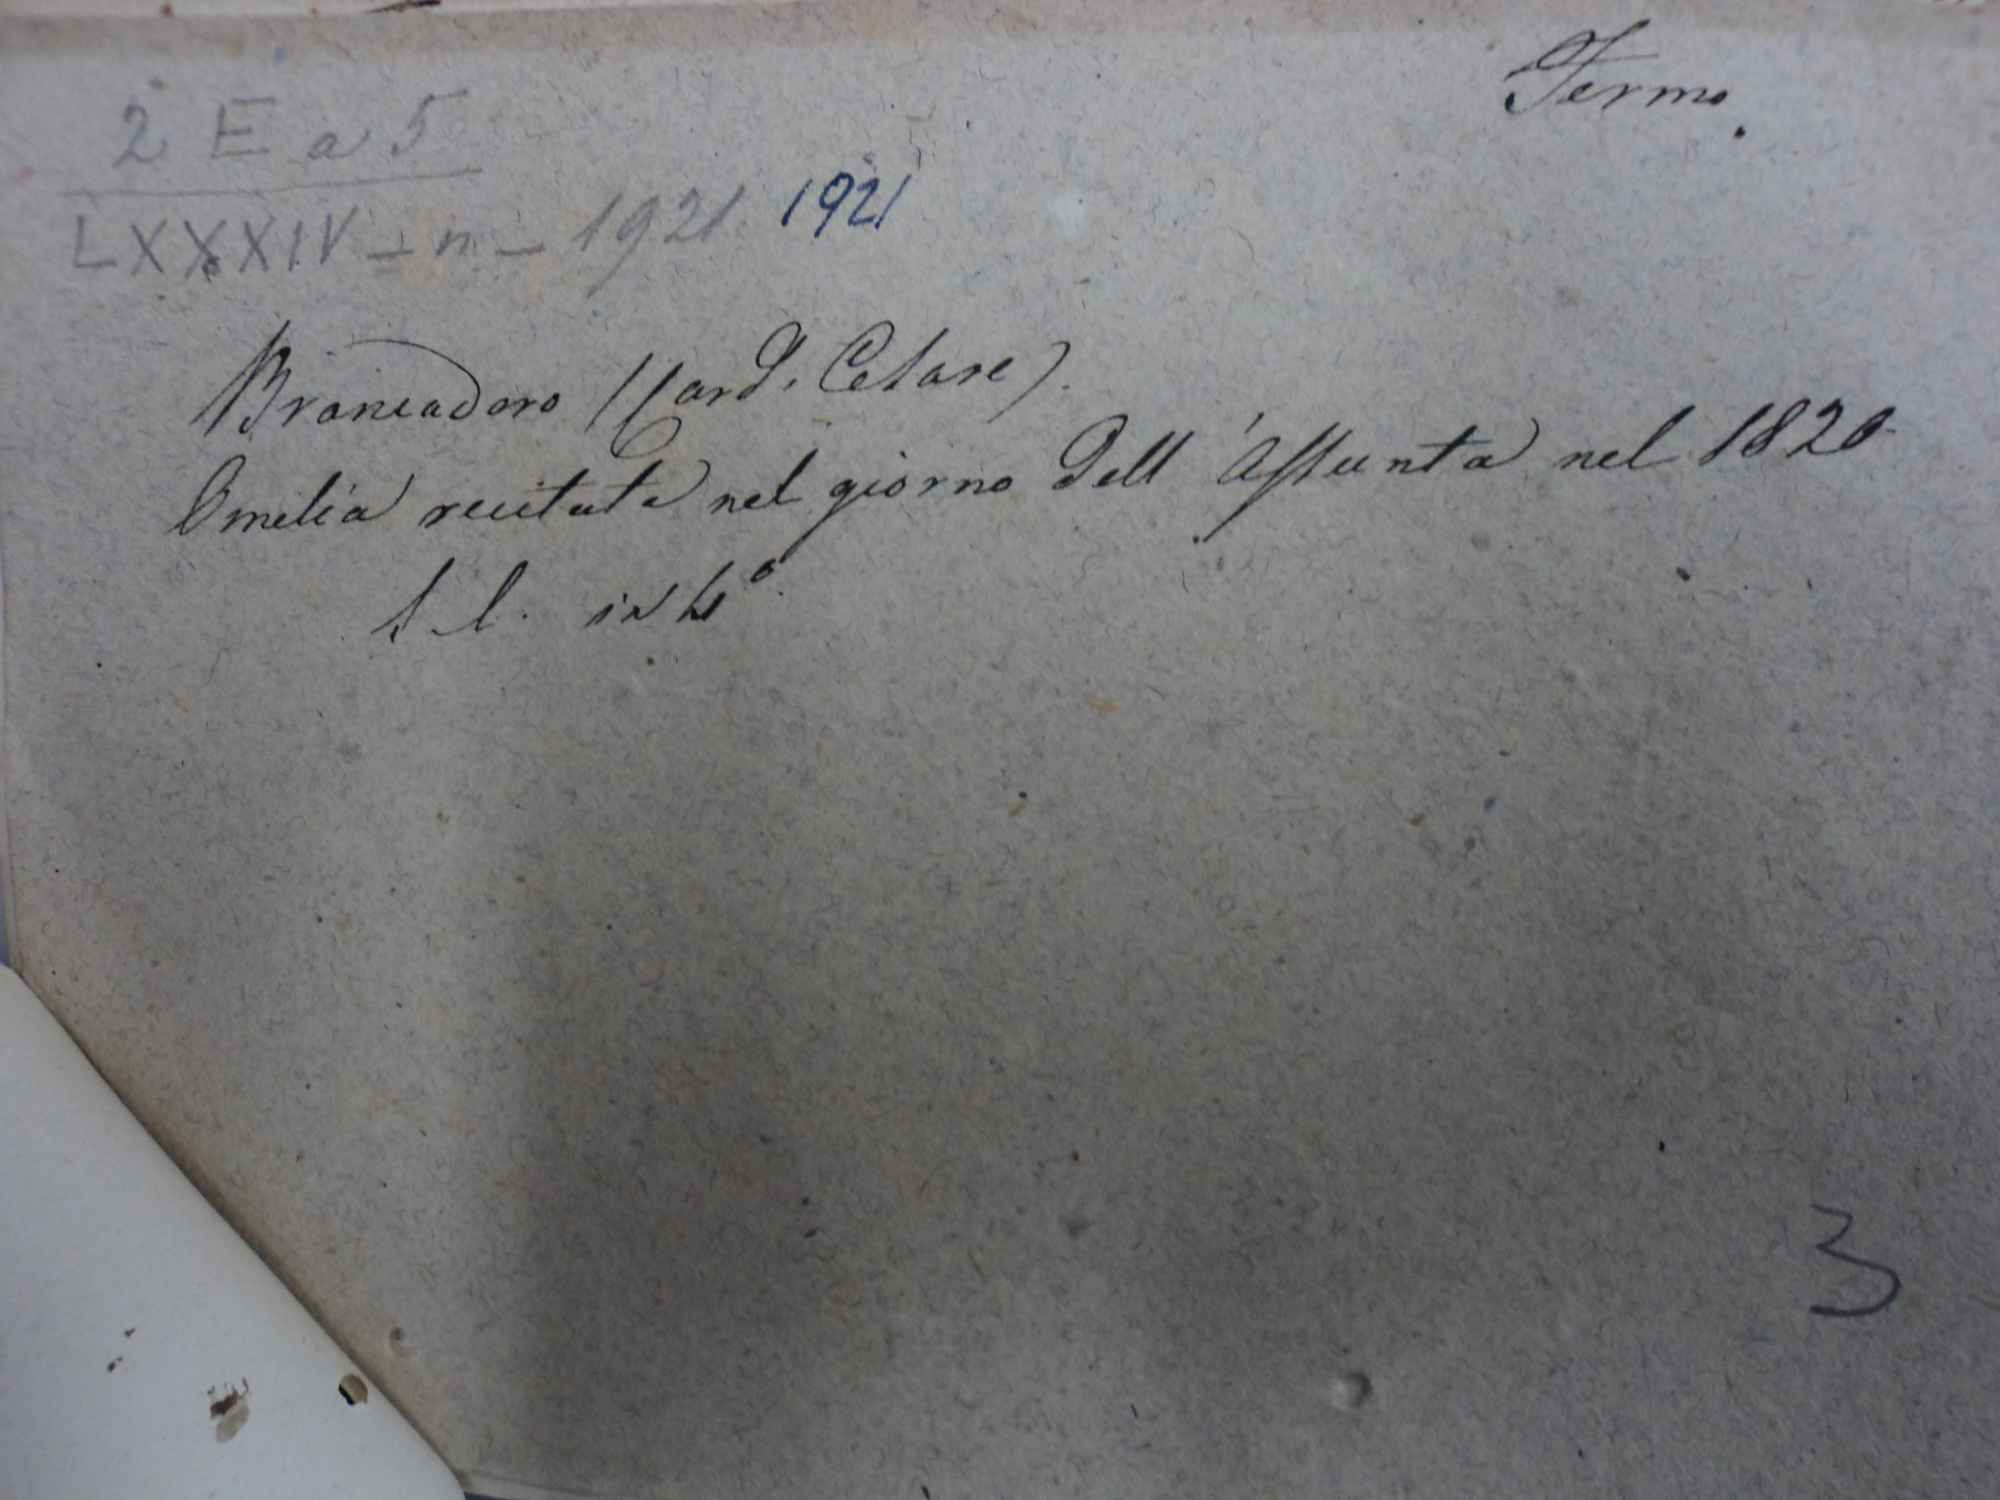 Fermo.
2 E a 5
LXXXIV - n - 1921 1921
Brancadoro (Card. Cesare).
Omelia recitata nel giorno dell'Assunta nel 1820
S. l. in 4°
3